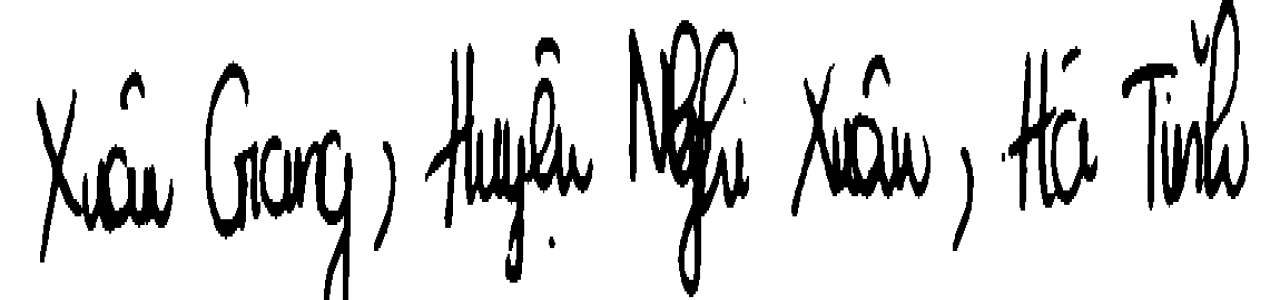 Xuân Giang, Huyện Nghi Xuân, Hà Tĩnh